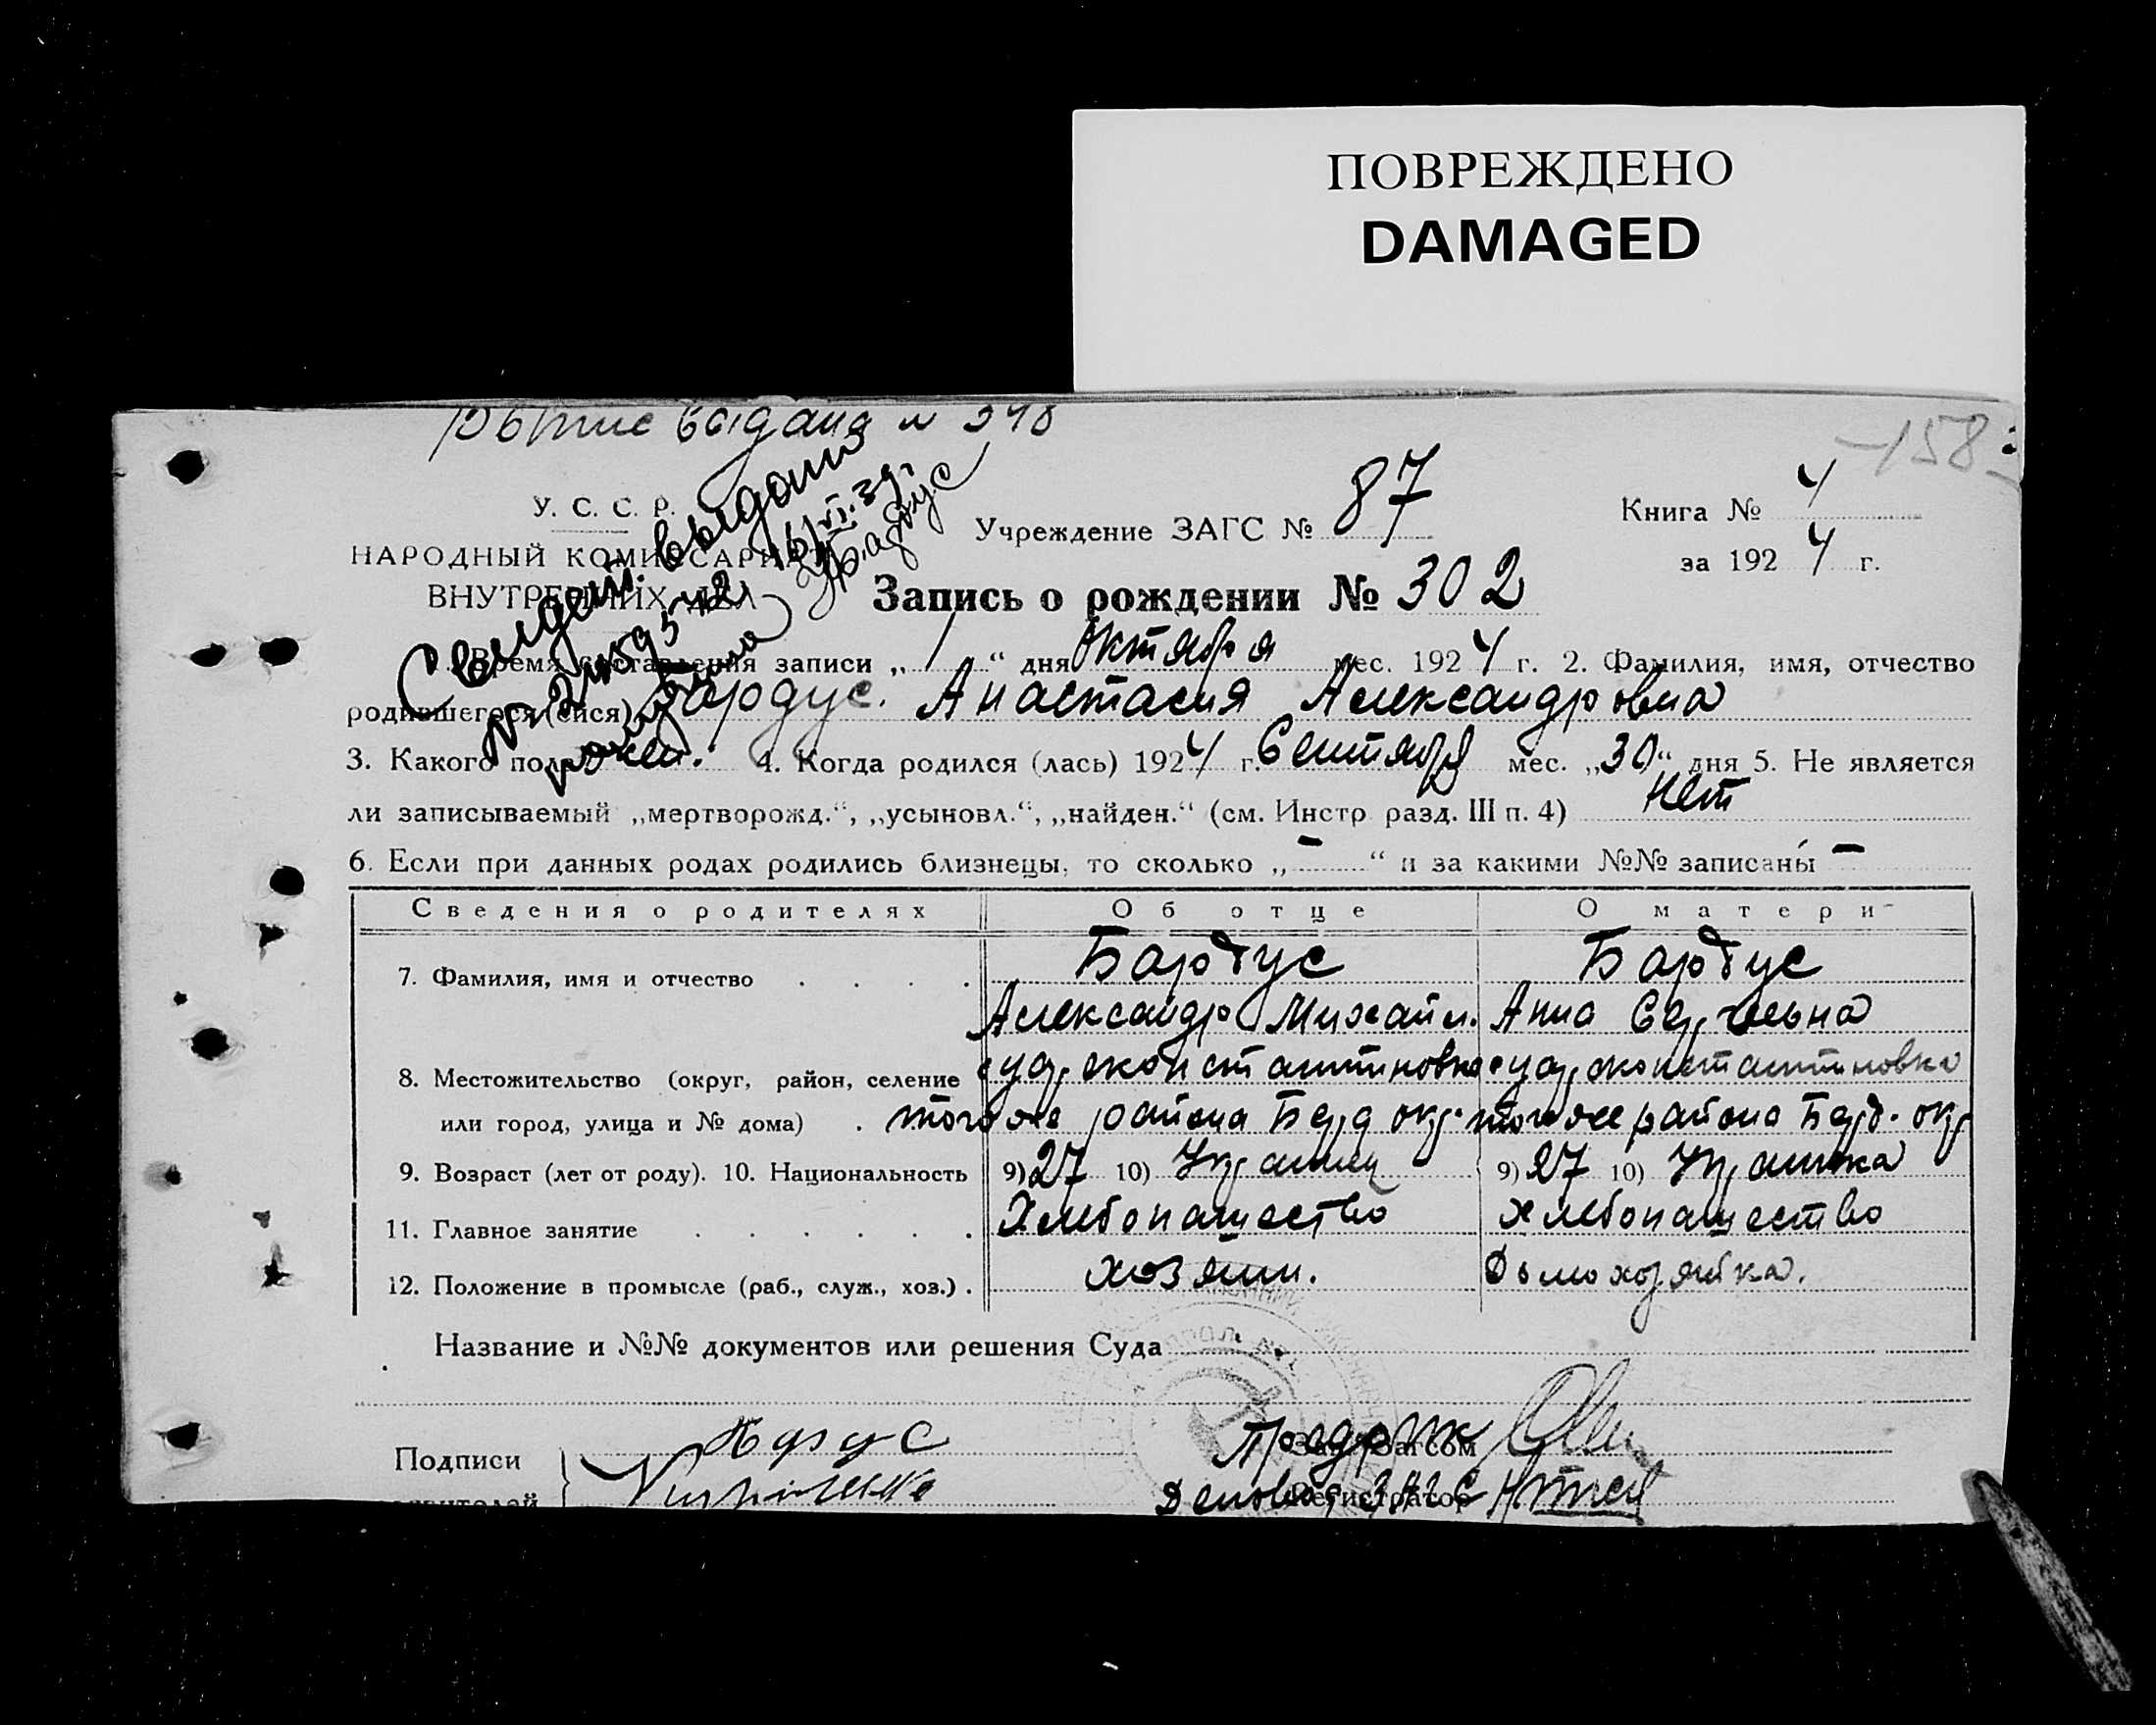 ПОВРЕЖДЕНО
DAMAGED
выдано №
158
У. С. С. Р.
НАРОДНЫЙ КОМИССАРИАТ
ВНУТРЕННИХ ДЕЛ
Свидет. выдано
Учреждение ЗАГС № 87
Книга № 4
за 192 4 г.
Запись о рождении № 302
1. Время составления записи „ 1 “ дня Октября мес. 192 4 г. 2. Фамилия, имя, отчество
родившегося (ейся) Бардус. Анастасия Александровна
3. Какого пола жен. 4. Когда родился (лась) 192 4 г. Сентября мес. „30“ дня 5. Не является
ли записываемый „мертворожд.“, „усыновл.“, „найден.“ (см. Инстр. разд. III п. 4) нет
6. Если при данных родах родились близнецы, то сколько „ – “ и за какими №№ записаны –
Сведения о родителях Об отце О матери
7. Фамилия, имя и отчество Бардус Бардус
Александр Михайл. Анна
8. Местожительство (округ, район, селение
или город, улица и № дома) того же района Берд окр. того же района Берд. окр
9. Возраст (лет от роду). 10. Национальность 9) 27 10) Украинец 9) 27 10) Украинка
11. Главное занятие Хлебопашество хлебопашество
12. Положение в промысле (раб., служ., хоз.) хозяин. Домохозяйка.
Название и №№ документов или решения Суда
Подписи Бардус Зав. Загсом
Регистратор